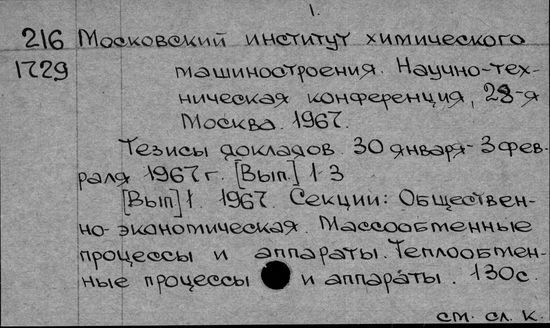 1.
216 Московский институт химического
1729 машиностроения. Научно-тех-
ническая конференция, 28-я
Москва. 1967.
Тезисы докладов. 30 января - 3 фев-
раля 1967 г. [Вып.] 1-3
[Вып] 1. 1967. Секции: Обществен-
но-экономическая. Массообменные
процессы и аппараты. Теплообмен-
ные процессы и аппараты. 130 с.
см. сл. к.